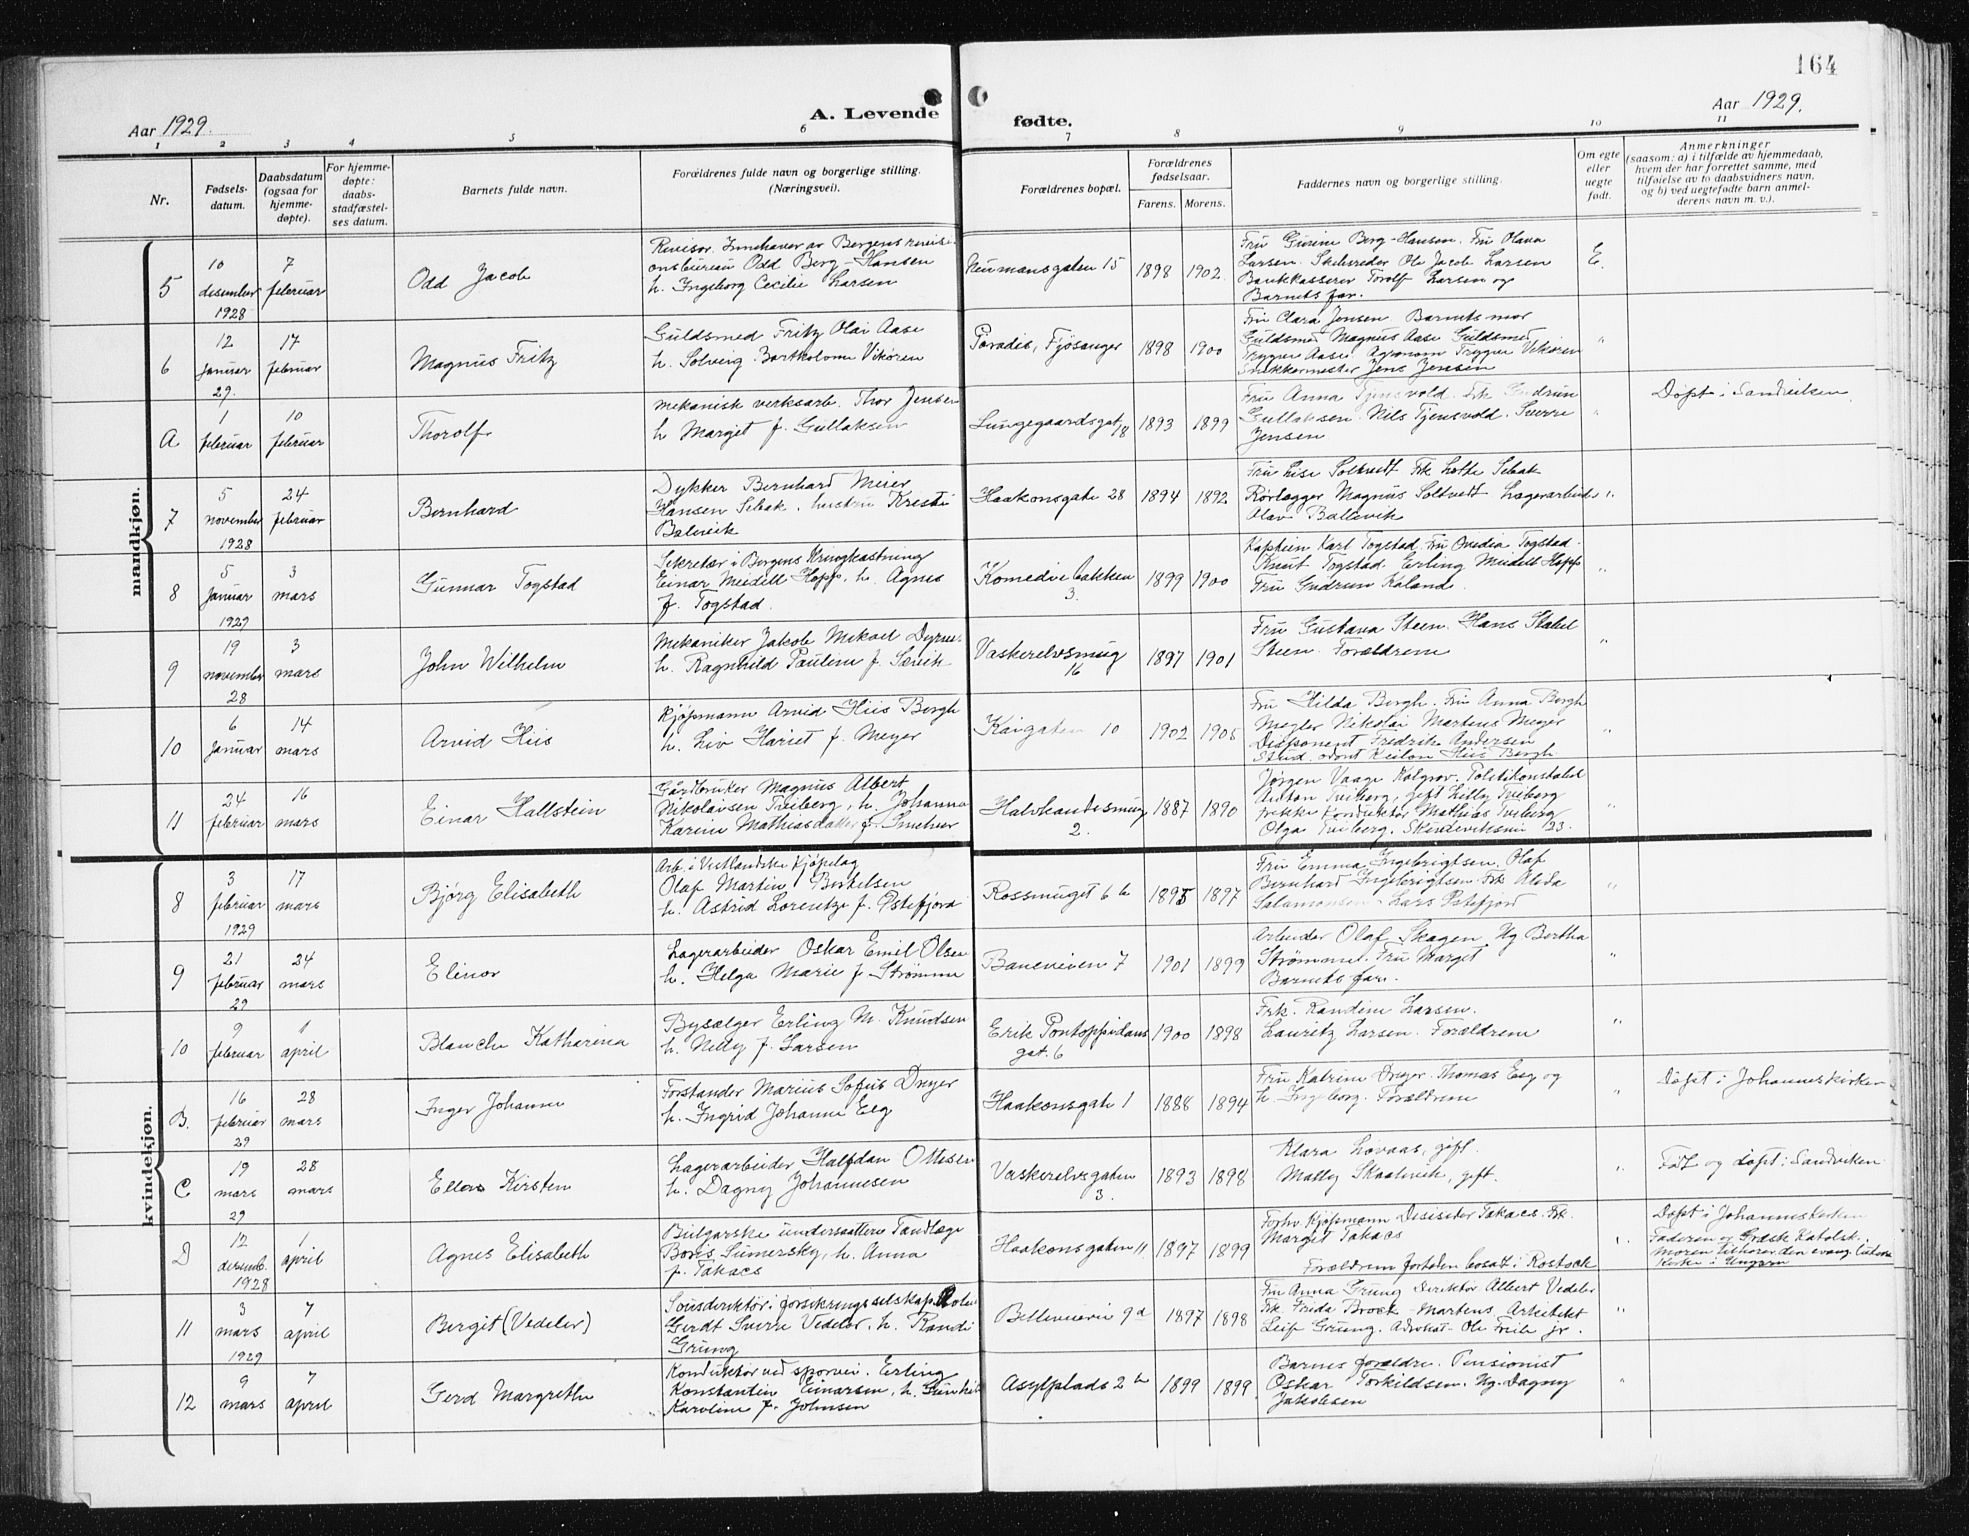 164
Aar 1929.
A. Levende
fødte.
Aar 1929.
1 2 3 4 5 6 7 8 9 10 11
Nr.
Fødsels-
datum.
Daabsdatum
(ogsaa for
hjemme-
døpte).
For hjemme-
døpte:
daabs-
stadfæstel-
ses datum.
Barnets fulde navn.
Forældrenes fulde navn og borgerlige stilling.
(Næringsvei).
Forældrenes bopæl.
Forældrenes
fødselsaar.
Farens. Morens.
Faddernes navn og borgerlige stilling.
Om egte
eller
uegte
født.
Anmerkninger
(saasom: a) i tilfælde av hjemmedaab,
hvem der har forrettet samme, med
tilføielse av to daabsvidners navn,
og b) ved uegtefødte barn anmel-
derens navn m. v.).
mandkjøn.
5
10
desember
1928
7
februar
Odd Jacob
Revisor. Innehaver av Bergens revisi-
onsbureau Odd Berg-Hansen
h. Ingeborg Cecilie Larsen
Neumansgaten 15
1898 1902
Fru Gusine Berg-Hansen. Fru Olava
Larsen. Skibsreder Ole Jacob Larsen
Bankkasserer Torolf Larsen og
Barnets far.
E.
6
12
januar
29.
17
februar
Magnus Fritz
Guldsmed Fritz Olai Aase
h. Solveig Bartholome Vikøren
Paradis, Fjøsanger
1898 1900
Fru Clara Jensen Barnets mor
Guldsmed Magnus Aase Guldsmed
Trygve Aase. Agronom Trygve Vikøren
Snikkermester Jens Jensen
"
A
1
februar
10
februar
Thorolf
Mekanisk verksarb. Thor Jensen
h Margit f. Gullaksen
Lungegaardsgat 18
1893 1899
Fru Anna Tjensvold. Frk Gudrun
Gullaksen. Nils Tjensvold. Sverre
Jensen
"
Døpt i Sandviken
7
5
november
1928
24
februar
Bernhard
Dykker Bernhard Meier
Hansen Sebak. hustru Kresti
Balevik
Haakonsgate 28
1894 1892
Fru Lise Soltvedt Frk Lotte Sebak
Rørlegger Magnus Soltvedt Lagerarbeider
Olav Ballevik
"
8
5
januar
1929
3
mars
Gunnar Togstad
Sekretær i Bergens Kringkastning
Einar Meidell Hopp. h. Agnes
f. Togstad.
Komediebakken
3.
1899 1900
Kaptein Karl Togstad. Fru Ovedia Togstad.
Knut Togstad. Erling Meidell Hopp
Fru Gudrun Kaland.
"
9
19
november
28
3
mars
John Wilhelm
Mekaniker Jakob Mikael
h. Ragnhild Pauline f.
Vaskerelvsmug
16
1897 1901
Fru Gustava Steen. Hans
Steen. Forældrene
"
10
6
januar
14
mars
Arvid Hiis
Kjøpmann Arvid Hiis Bergh
h. Liv Hariet f. Meyer
Kaigaten 10
1902
Fru Hilda Bergh. Fru Anna Bergh
Megler Nikolai Martens Meyer
Disponent Fredrik Andersen
Stud. odont Hiis Bergh
"
11
24
februar
16
mars
Einar Hallstein
Gårdbruker Magnus Albert
Nikolaisen Tveiberg, h. Johanna
Karine Mathiasdatter f.
2.
1887 1890
Jørgen Vaage Kolgrov. Politikonstabel
Anton Tveiberg, gift Lilly Tveiberg
trikke konduktør Mathias Tveiberg
Olga Tveiberg. 23.
"
kvindekjøn.
8
3
februar
1929
17
mars
Bjørg Elisabeth
Arb. i Vestlandske Kjøpelag
Olaf Martin Berkelsen
h. Astrid Lorentze f. Østefjord
Rossmuget 6 b
1895 1897
Fru Emma Ingebrigtsen. Olaf
Bernhard Ingebrigtsen. Frk Alida
Salamonsen. Lars Østefjord
"
9
21
februar
29
24
mars
Elinor
Lagerarbeider Oskar Emil Olsen
h. Helga Marie f. Strømme
Baneveien 7
1901 1899
Arbeider Olaf Skagen Ug. Bertha
Strømme. Fru Marget
Barnets far.
"
10
9
februar
1
april
Blanche Katharina
Bysælger Erling M. Knudsen
h. Nelly f. Larsen
Erik Pontoppidans
gat. 6
1900 1898
Frk. Randine Larsen.
Lauritz Larsen. Forældrene
"
B.
16
februar
29
28
mars
Inger Johanne
Forstander Marius Sofus Dreyer
h. Ingrid Johanne Eeg
Haakonsgate 1
1888 1894
Fru Katrine Dreyer. Thomas Eeg og
h. Ingeborg. Forældrene
"
Døpt i Johanneskirken
C
19
mars
29
28
mars
Ellen Kirsten
Lagerarbeider Halfdan Ottesen
h. Dagny Johannesen
Vaskerelvsgaten
3.
1893 1898
Klara Lovaas, gift.
Mally Skaalevik, gift.
"
Født og døpt i Sandviken
D
12
desemb.
1928
1
april
Agnes Elisabeth
Bulgarske undersaatter Tandlæge
Boris Sumersky, h. Anna
f. Takacs
Haakonsgaten 11
1897 1899
Forhv Kjøpmann Desiseder Takacs. Frk.
Margit Takacs
Forældrene fortiden bosatt i Rostock
"
Døpt i Johanneskirken
Faderen er Græsk Katolsk.
Moren tilhører den evang. luthersk
kirke i Ungarn
11
3
mars
1929
7
april
Bergit (Vedeler)
Sousdirektør i forsikringsselskap
Gerdt Sverre Vedeler, h. Randi
Grung
Bellevueveien 9d
1897 1898
Fru Anna Grung Direktør Albert Vedeler
Frk. Frida Brock-Martens. Arkitekt
Leif Grung. Advokat Ole Friele jr.
"
12
9
mars
7
april
Gerd Margrethe
Konduktør ved sporvei. Erling
Konstantin Einarsen, h. Gunhild
Karoline f. Johnsen
Asylplads 2 b
1899 1899
Barnes forældre. Pensionist
Oskar Torkildsen. Ug. Dagny
Jakobsen
"